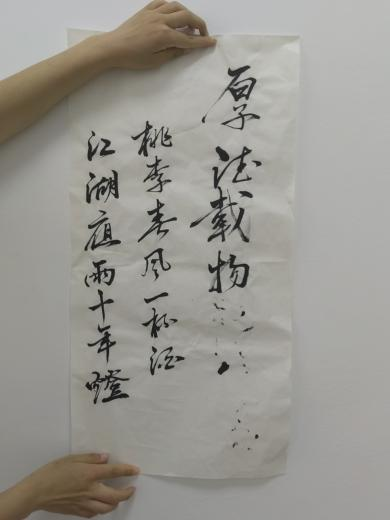 厚德载物
桃李春风一杯酒
江湖夜雨十年灯